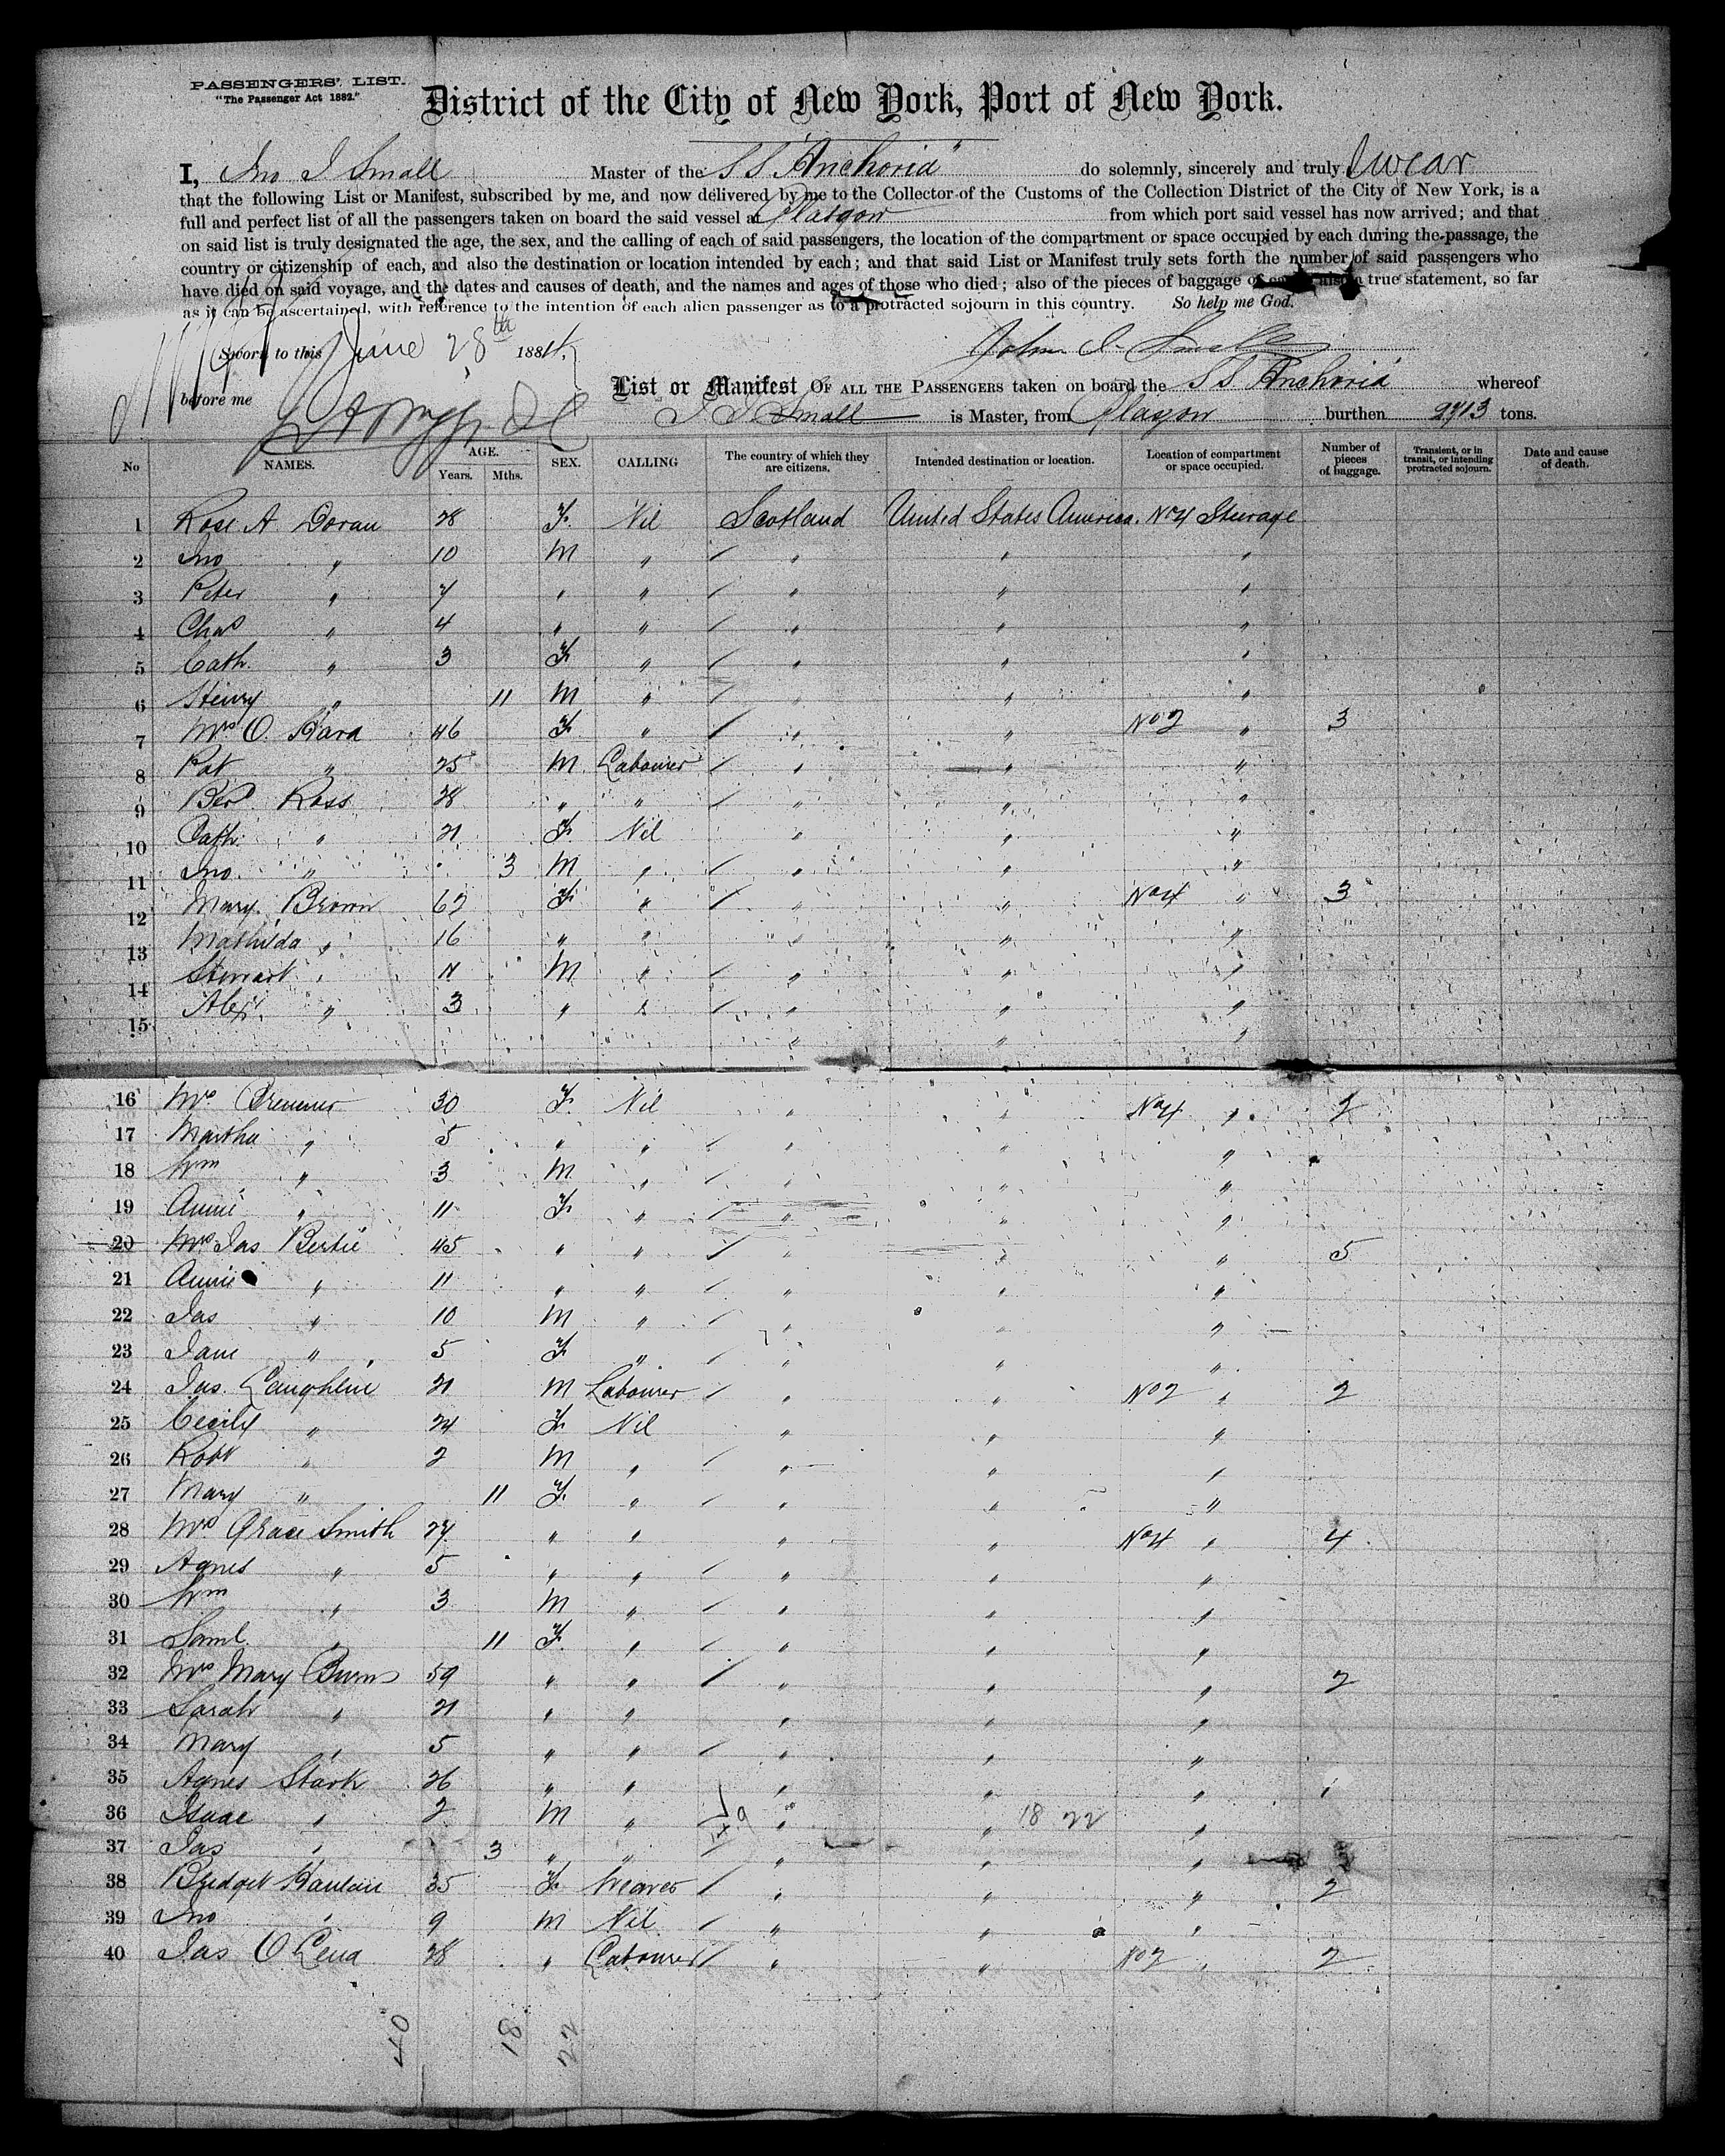 PASSENGERS' LIST.
"The Passenger Act 1882."
District of the City of New York, Port of New York.
I, Jno J Small Master of the SS "Anchoria" do solemnly, sincerely and truly Swear
that the following List or Manifest, subscribed by me, and now delivered by me to the Collector of the Customs of the Collection District of the City of New York, is a
full and perfect list of all the passengers taken on board the said vessel at Glasgow from which port said vessel has now arrived; and that
on said list is truly designated the age, the sex, and the calling of each of said passengers, the location of the compartment or space occupied by each during the passage, the
country or citizenship of each, and also the destination or location intended by each; and that said List or Manifest truly sets forth the number of said passengers who
have died on said voyage, and the dates and causes of death, and the names and ages of those who died; also of the pieces of baggage of each; also a true statement, so far
as it can be ascertained, with reference to the intention of each alien passenger as to a protracted sojourn in this country. So help me God.
Sworn to this June 28th 1884. John J Small
before me
List or Manifest OF ALL THE PASSENGERS taken on board the SS Anchoria whereof
J J Small is Master, from Glasgow burthen 2713 tons.
No NAMES. AGE. Years. Mths. SEX. CALLING The country of which they are citizens. Intended destination or location. Location of compartment or space occupied. Number of pieces of baggage. Transient, or in transit, or intending protracted sojourn. Date and cause of death.
1 Rose A. Doran 28 F. Nil Scotland United States America. No 4 Steerage
2 Jno " 10 M " / " " "
3 Peter " 7 " " / " " "
4 Chas " 4 " " / " " "
5 Cath. " 3 F " / " " "
6 Henry " 11 M " / " " "
7 Mrs O. Hara 46 F " / " " No 2 " 3
8 Pat " 25 M Labourer / " " "
9 Berd. Ross 28 " " / " " "
10 Cath. " 21 F Nil " " "
11 Jno. " 3 M " / " " "
12 Mary Brown 62 F " / " " No 4 " 3
13 Mathilda " 16 " " " " "
14 Stewart " 11 M " / " " "
15 Alexr. " 3 " " / " " "
" " "
16 Mrs Bremner 30 F. Nil " " No 4 " 2
17 Martha " 5 " " / " " "
18 Wm " 3 M " / " " "
19 Annie " 11 F " / " " "
20 Mrs Jas Bertie 45 " " / " " " 5
21 Annie " 11 " " / " " "
22 Jas " 10 M " / " " "
23 Jane " 5 F " / " " "
24 Jas. Laughlin 21 M Labourer / " " No 2 " 2
25 Cecily " 24 F Nil " " "
26 Robt " 2 M " / " " "
27 Mary " 11 F. " / " " "
28 Mrs Grace Smith 27. " " " " No 4 " 4
29 Agnes " 5 " " / " " "
30 Wm " 3 M " / " " "
31 Saml. " 11 F. " / " " "
32 Mrs Mary Burns 59 " " / " " " 2
33 Sarah " 21 " " " " "
34 Mary " 5 " " / " " "
35 Agnes Stark 26 " " " " " 1
36 Isaac " 2 M " " " 18 22 "
37 Jas " 3 " " / " " "
38 Bridget Hanlon 35 F Weaver / " " " 2
39 Jno " 9 M Nil / " " "
40 Jas O'Lena 28 " Labourer / " " No 2 " 2
40 18 22